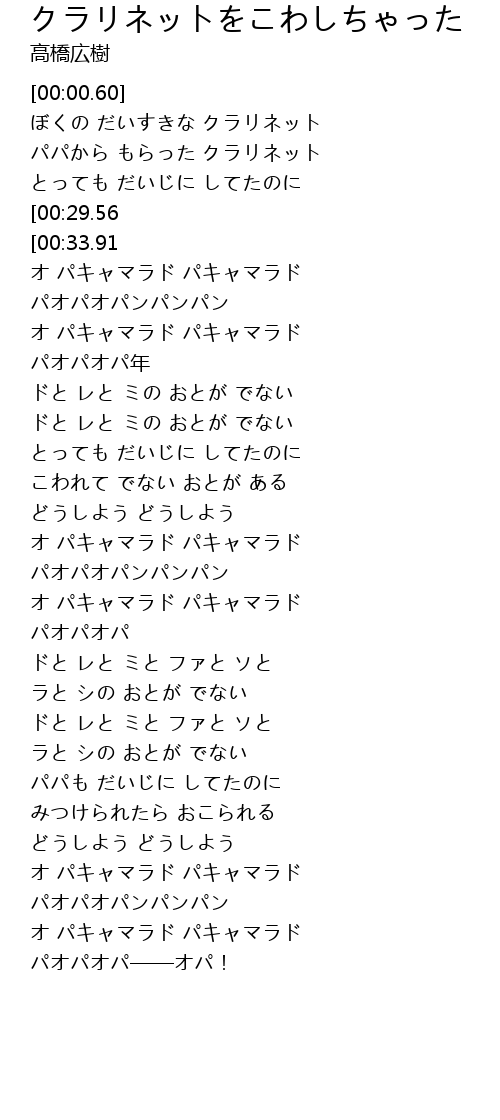 クラリネットをこわしちゃった
高橋広樹
[00:00.60]
ぼくの だいすきな クラリネット
パパから もらった クラリネット
とっても だいじに してたのに
[00:29.56
[00:33.91
オ パキャマラド パキャマラド
パオパオパンパンパン
オ パキャマラド パキャマラド
パオパオパ年
ドと レと ミの おとが でない
ドと レと ミの おとが でない
とっても だいじに してたのに
こわれて でない おとが ある
どうしよう どうしよう
オ パキャマラド パキャマラド
パオパオパンパンパン
オ パキャマラド パキャマラド
パオパオパ
ドと レと ミと ファと ソと
ラと シの おとが でない
ドと レと ミと ファと ソと
ラと シの おとが でない
パパも だいじに してたのに
みつけられたら おこられる
どうしよう どうしよう
オ パキャマラド パキャマラド
パオパオパンパンパン
オ パキャマラド パキャマラド
パオパオパ——オパ！